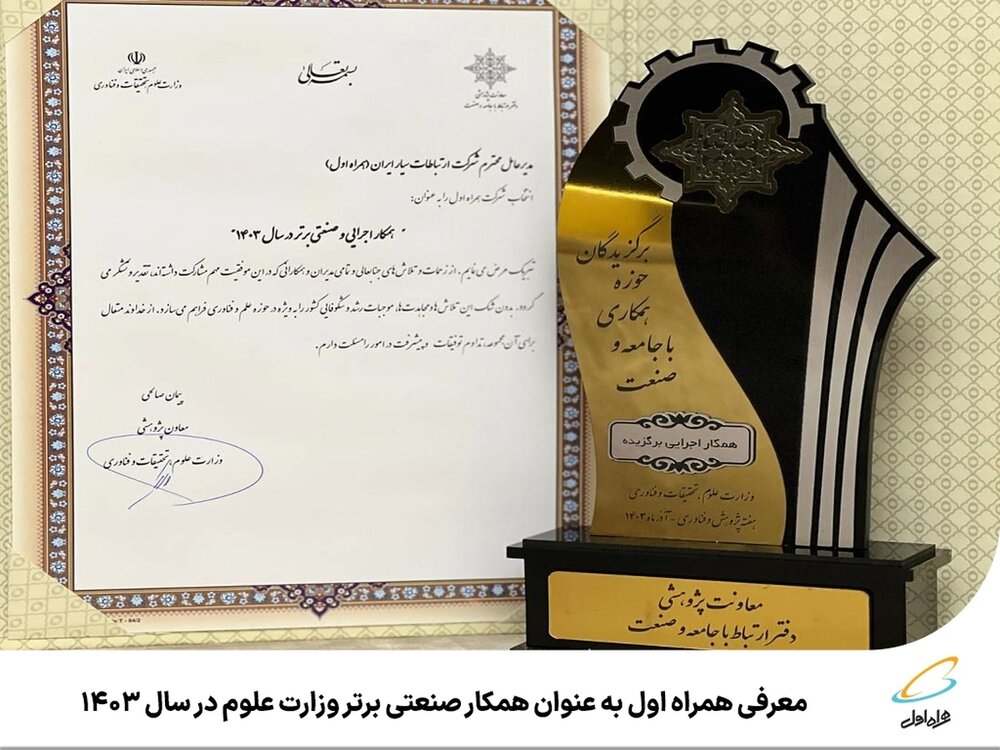 بسمه تعالی
جمهوری اسلامی ایران
وزارت علوم، تحقیقات و فناوری
معاونت پژوهشی
دفتر ارتباط با جامعه و صنعت
مدیرعامل محترم شرکت ارتباطات سیار ایران (همراه اول)
انتخاب شرکت همراه اول را به عنوان:
" همکار اجرایی و صنعتی برتر در سال ۱۴۰۳"
تبریک عرض می نمایم. از زحمات و تلاش های جنابعالی و تمامی مدیران و همکارانی که در این موفقیت مهم مشارکت داشته‌اند، تقدیر و تشکر می
گردد. بدون شک این تلاش‌ها و مجاهدت‌ها، موجبات رشد و شکوفایی کشور را به ویژه در حوزه علم و فناوری فراهم می‌سازد. از خداوند متعال
برای آن مجموعه، تداوم توفیقات و پیشرفت در امور را مسئلت دارم.
پیمان صالحی
معاون پژوهشی
وزارت علوم، تحقیقات و فناوری
برگزیدگان
حوزه
همکاری
با جامعه و
صنعت
همکار اجرایی برگزیده
وزارت علوم، تحقیقات و فناوری
هفته پژوهش و فناوری - آذرماه ۱۴۰۳
معاونت پژوهشی
دفتر ارتباط با جامعه و صنعت
معرفی همراه اول به عنوان همکار صنعتی برتر وزارت علوم در سال ۱۴۰۳
همراه اول